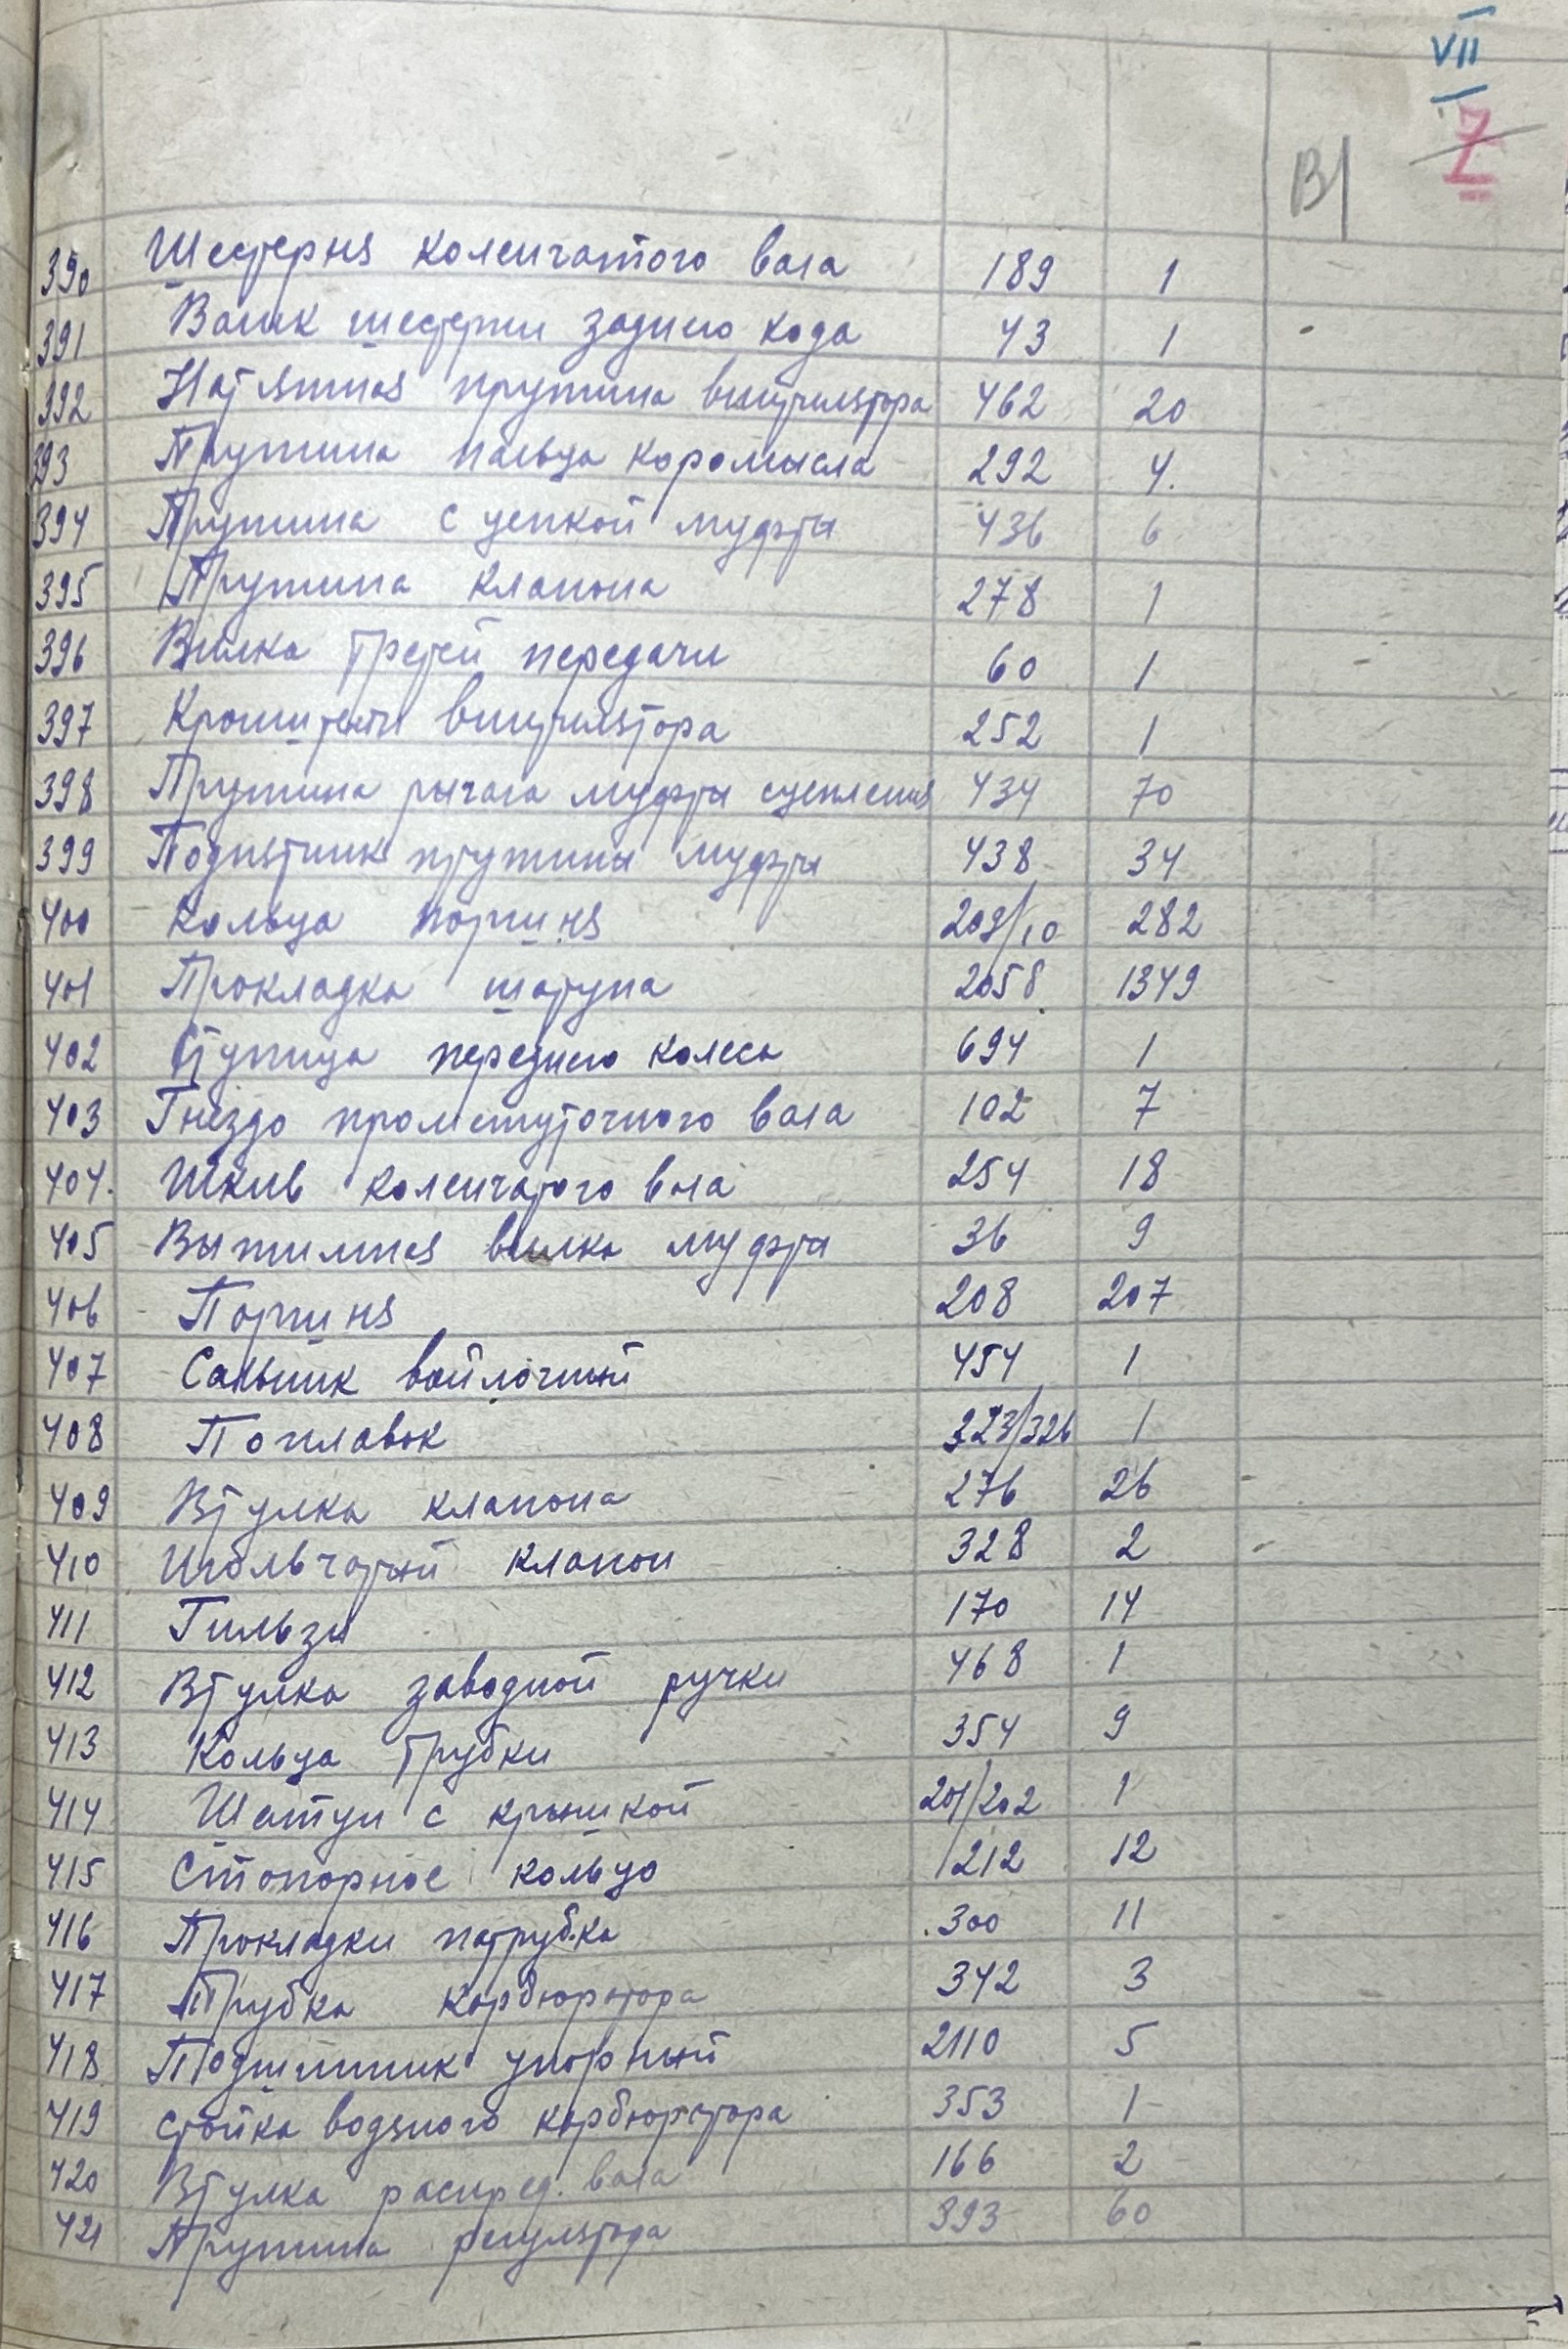 VII
7
В/
390 Шестерня коленчатого вала 189 1
391 Валик шестерни заднего хода 43 1
392 Натяжная пружина вентилятора 462 20
393 Пружина пальца коромысла 292 4.
394 Пружина сцепкой муфты 436 6
395 Пружина клапона 278 1
396 Вилка третей передачи 60 1
397 Кронштейн вентилятора 252 1
398 Пружина рычага муфты сцепления 434 70
399 Подпятник пружины муфты 438 34
400 Кольца поршня 209/10 282
401 Прокладка шатуна 2058 1349
402 Ступица переднего колеса 694 1
403 Гнездо промежуточного вала 102 7
404. Шкив коленчатого вала 254 18
405 Выжимная вилка муфты 36 9
406 Поршня 208 207
407 Сальник войлочный 454 1
408 Поплавок 323/326 1
409 Втулка клапона 276 26
410 Игольчатый клапон 328 2
411 Гильзы 170 14
412 Втулка заводной ручки 468 1
413 Кольца трубки 354 9
414 Шатун с крышкой 201/202 1
415 Стопорное кольцо 212 12
416 Прокладки патрубка 300 11
417 Трубка карбюратора 342 3
418 Подшипник упорный 2110 5
419 Стойка водяного карбюратора 353 1
420 Втулка распред. вала 166 2
421 Пружина регулятора 393 60